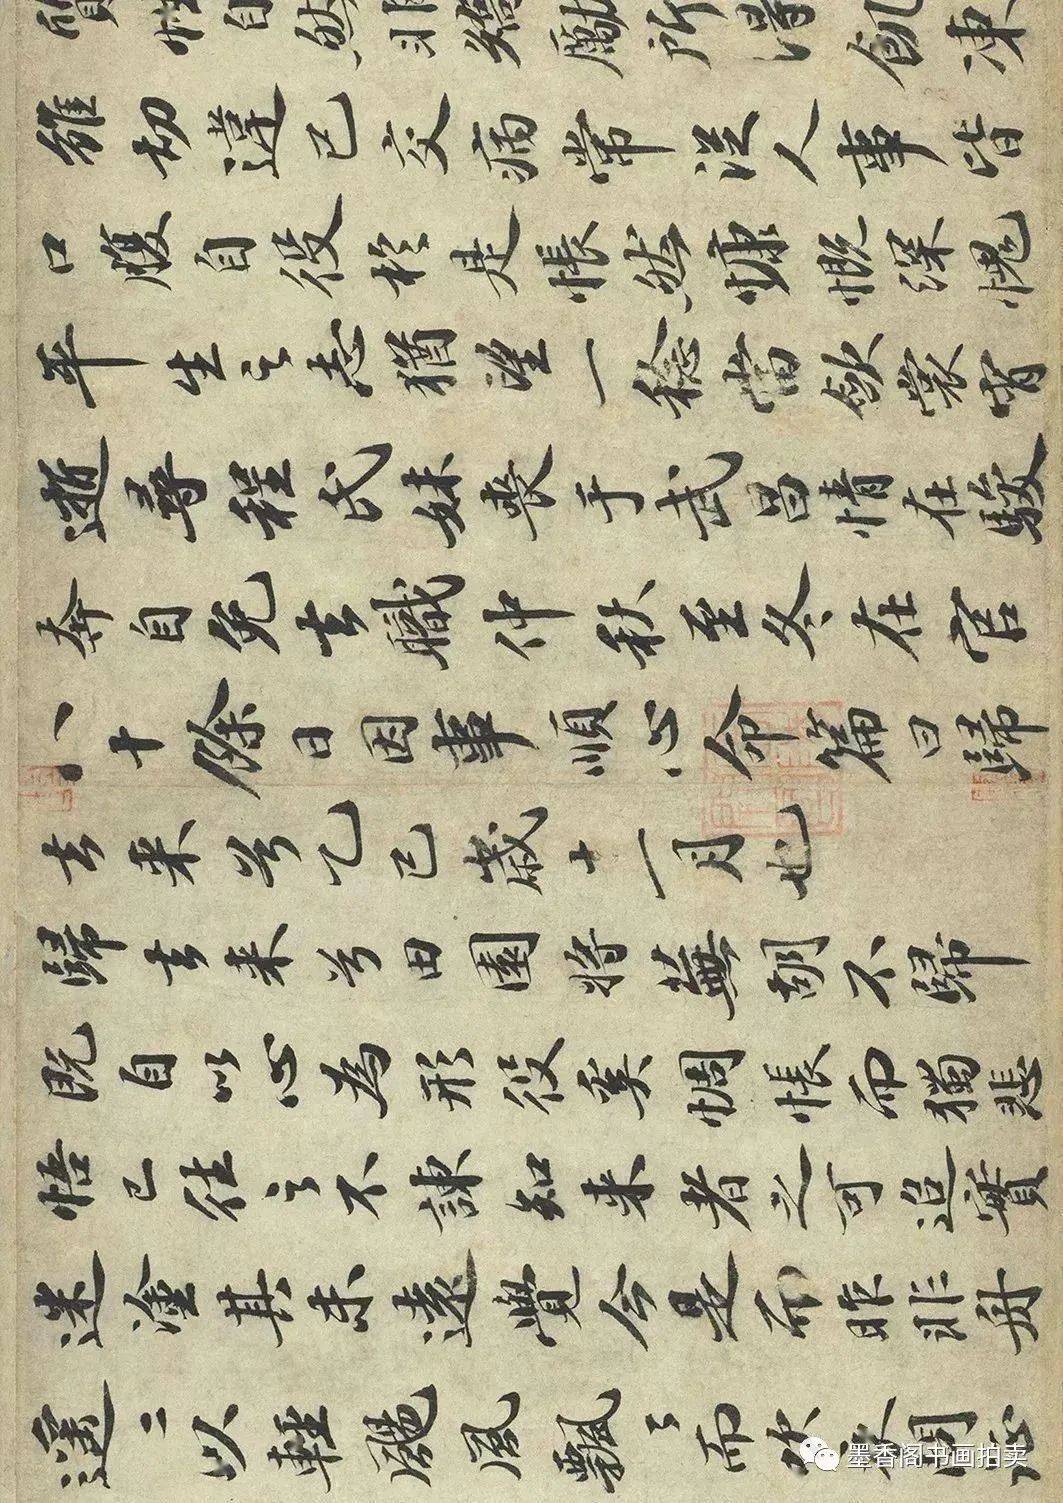 質性自然非矯勵所得飢凍
雖切違己交病常從人事皆
口腹自役於是悵然慷慨深愧
平生之志猶望一稔當斂裳宵
逝尋程氏妹喪于武昌情在駿
奔自免去職仲秋至冬在官
八十餘日因事順心命篇曰歸
去来兮乙巳歲十一月也
歸去来兮田園將蕪胡不歸
既自以心為形役奚惆悵而獨悲
悟已往之不諫知来者之可追實
迷塗其未遠覺今是而昨非舟
遥〻以輕颺風飄〻而吹衣問
墨香阁书画拍卖